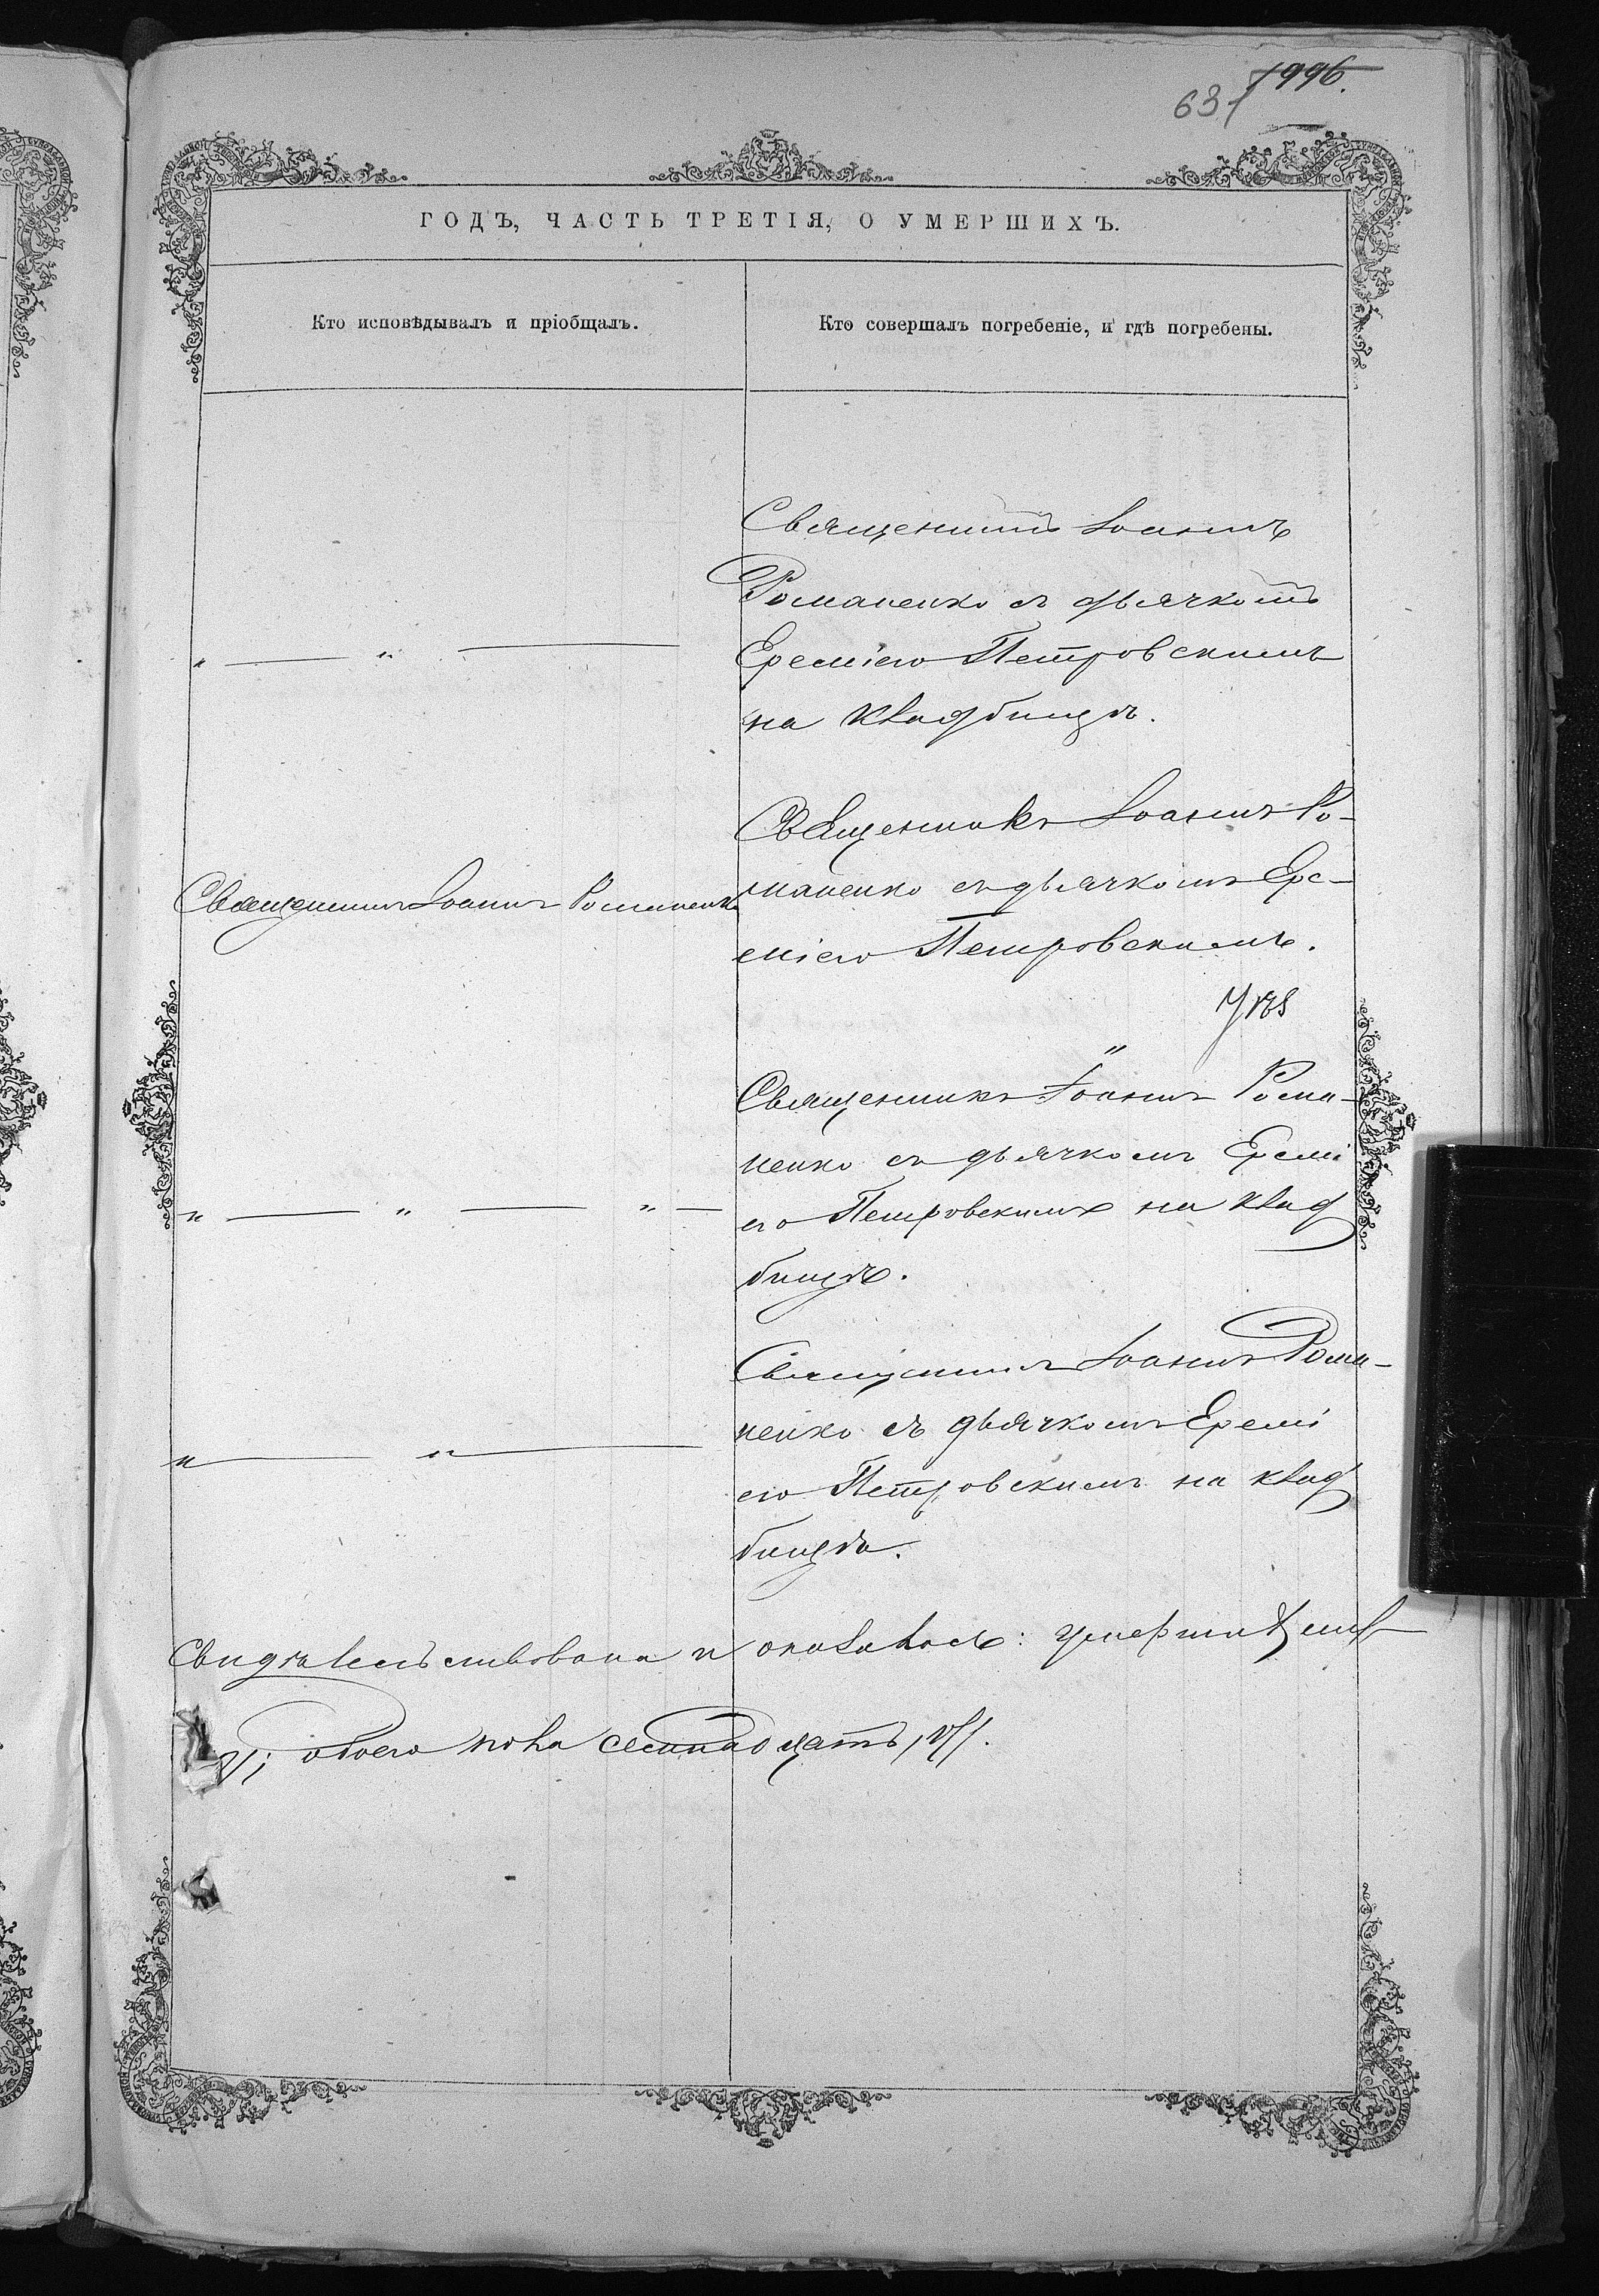 1996.
631
ГОДЪ, ЧАСТЬ ТРЕТІЯ, О УМЕРШИХЪ.
Кто исповѣдывалъ и пріобщалъ.
Кто совершалъ погребеніе, и гдѣ погребены.
Священникъ Іоаннъ
Романенко съ дьячкомъ
Ереміею Петровскимъ
на кладбищѣ.
„ — „ —
Священникъ Іоаннъ Романенко
Священникъ Іоаннъ Ро-
маненко съ дьячкомъ Ере-
міею Петровскимъ.
„
Священникъ Іоаннъ Рома-
ненко съ дьячкомъ Еремі
ею Петровскимъ на клад
бищѣ.
„ — „ — „ —
Священникъ Іоаннъ Рома-
ненко съ дьячкомъ Еремі
ею Петровскимъ на клад
бищѣ.
„ — „ —
Свидѣтельствована и оказалось: умершихъ
обоего пола семнадцать